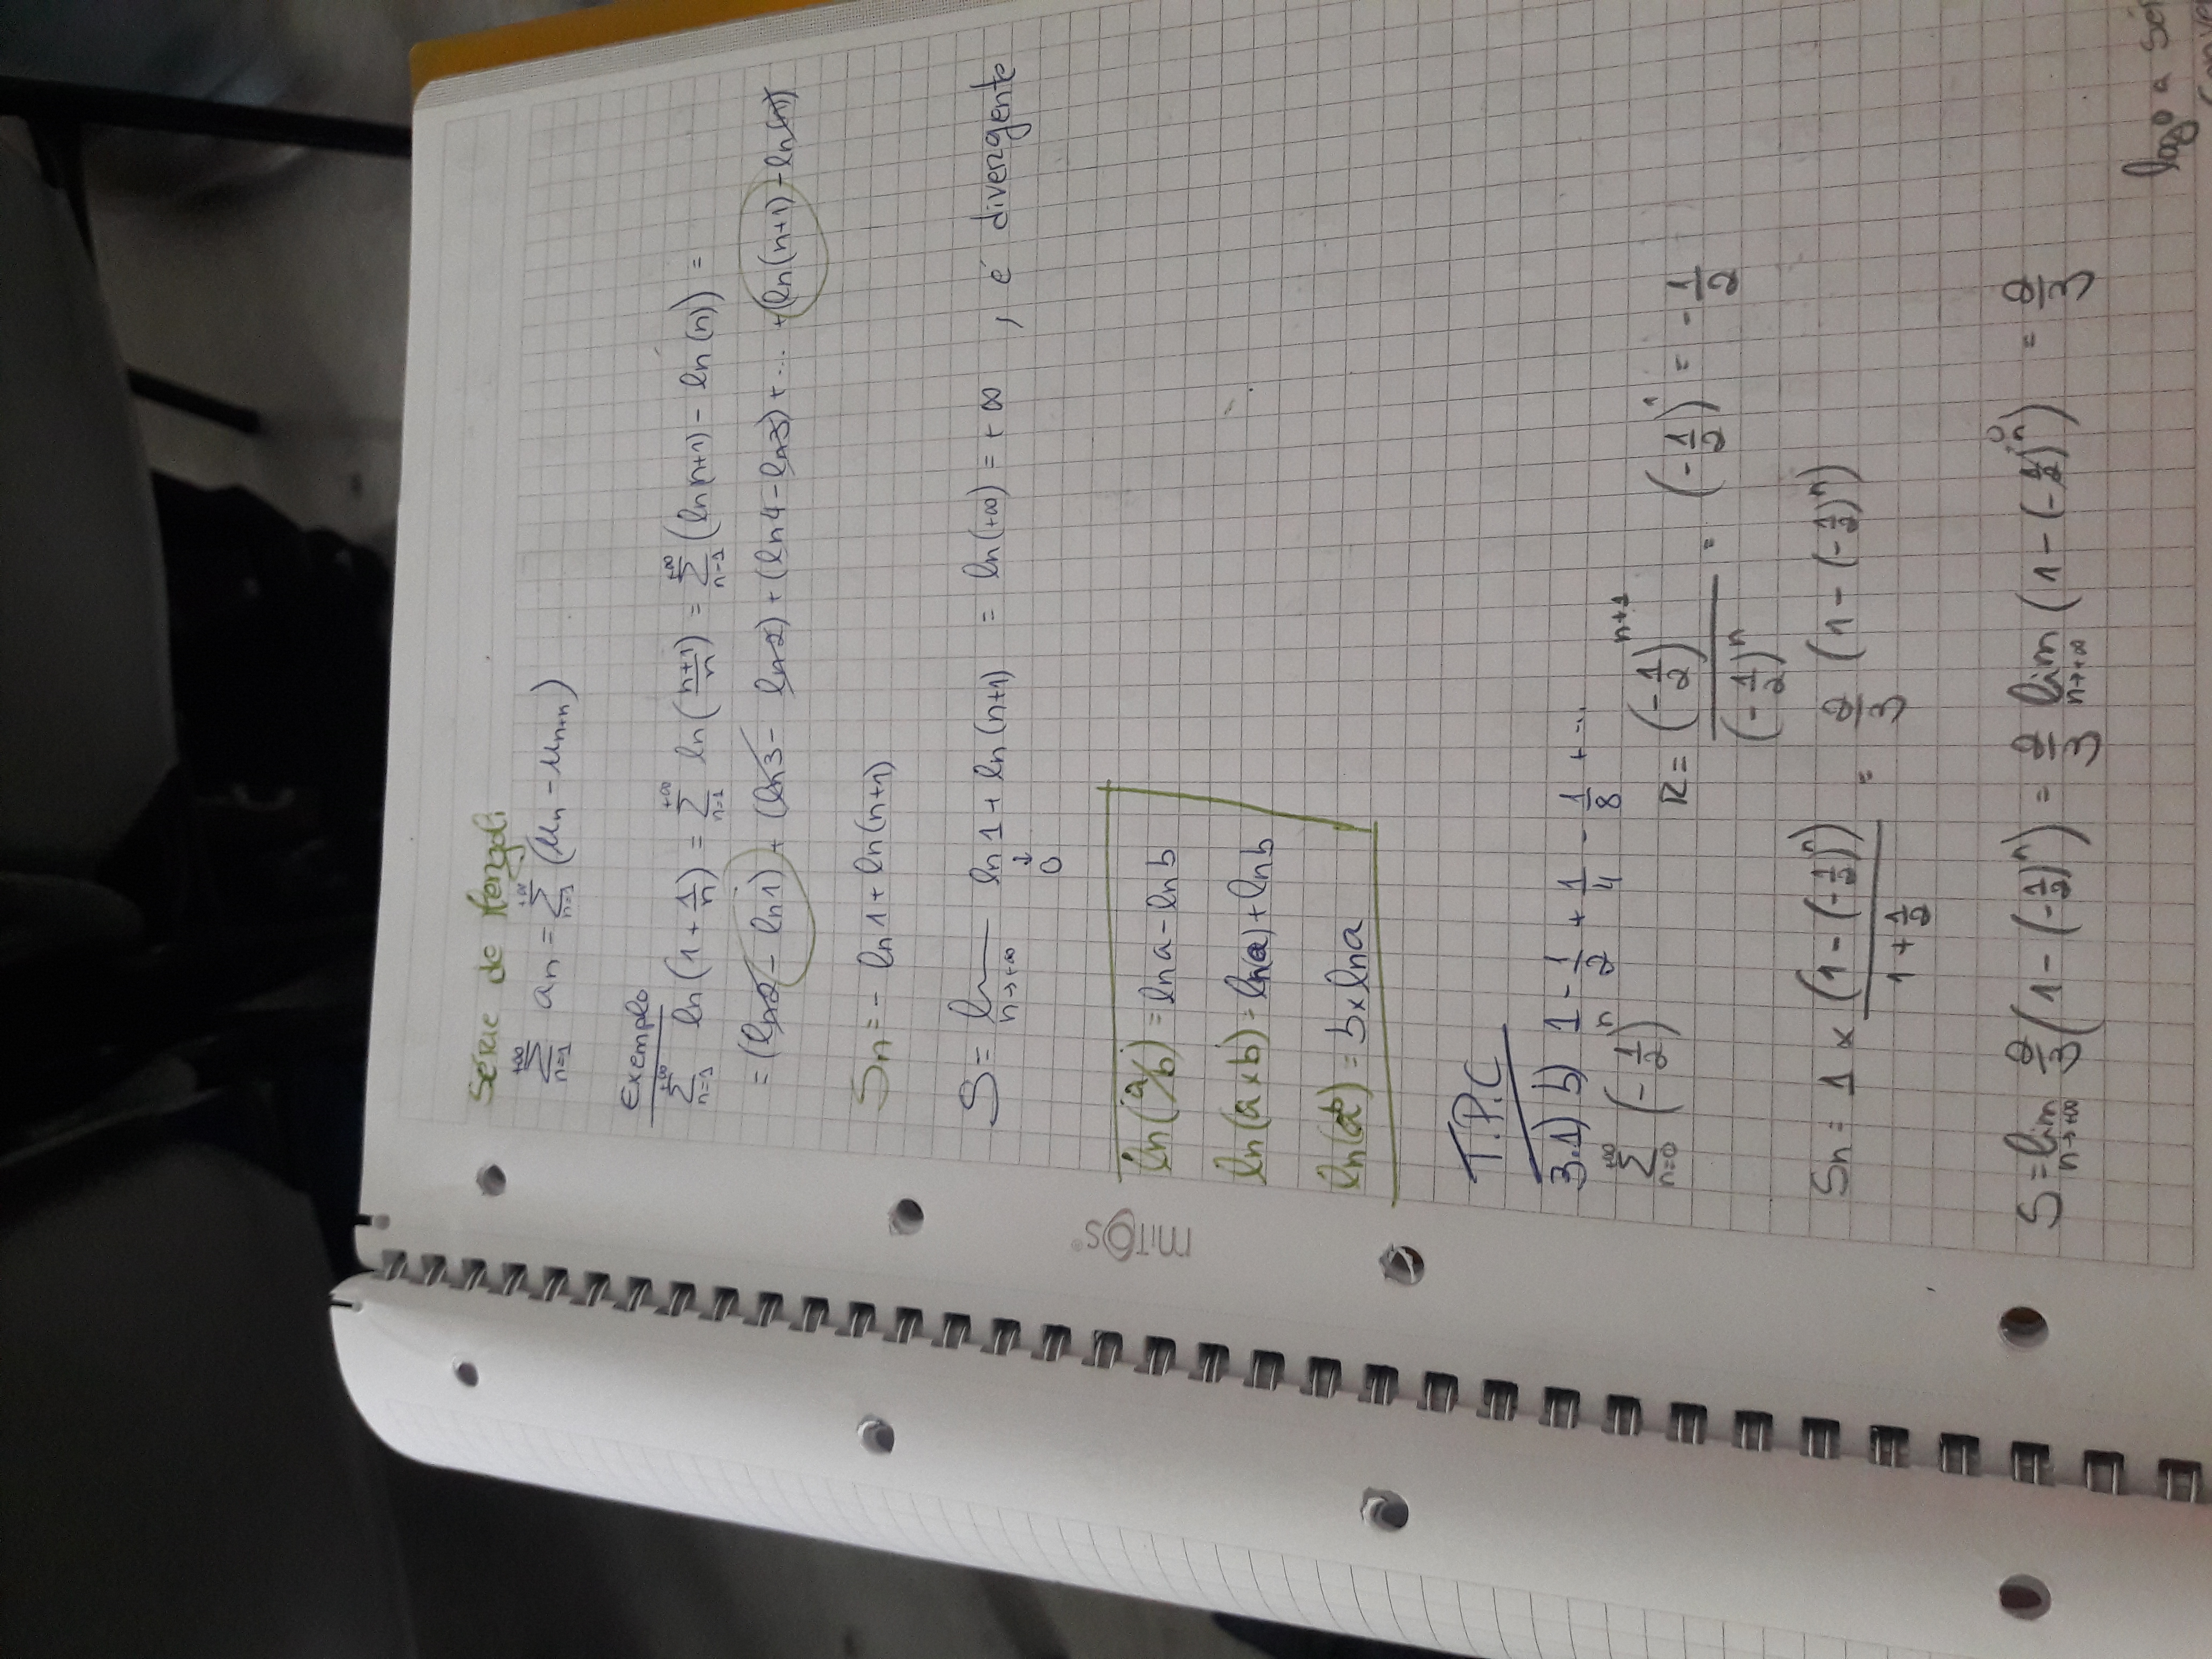 Série de Mengoli
+∞∑n=1 an = +∞∑n=1 (un - un+n)
Exemplo
+∞∑n=1 ln(1 + 1/n) = +∞∑n=1 ln((n+1)/n) = +∞∑n=1 (ln(n+1) - ln(n)) =
= (ln2 - ln1) + (ln3 - ln2) + (ln4 - ln3) + ... + (ln(n+1) - ln(n))
Sn = - ln1 + ln(n+1)
S = lim n→+∞ ln1 + ln(n+1) = ln(+∞) = +∞ , é divergente
↓
0
MITOS®
ln(a/b) = lna - lnb
ln(a×b) = ln(a) + lnb
ln(a^b) = b×lna
T.P.C
3.1) b) 1 - 1/2 + 1/4 - 1/8 + ...
+∞∑n=0 (-1/2)^n R = (-1/2)^(n+1) / (-1/2)^n = (-1/2)^1 = -1/2
Sn = 1 × (1 - (-1/2)^n) / (1 + 1/2) = 2/3 (1 - (-1/2)^n)
S = lim n→+∞ 2/3 (1 - (-1/2)^n) = 2/3 lim n→+∞ (1 - (-1/2)^n) 0 = 2/3
logo a sér
conve